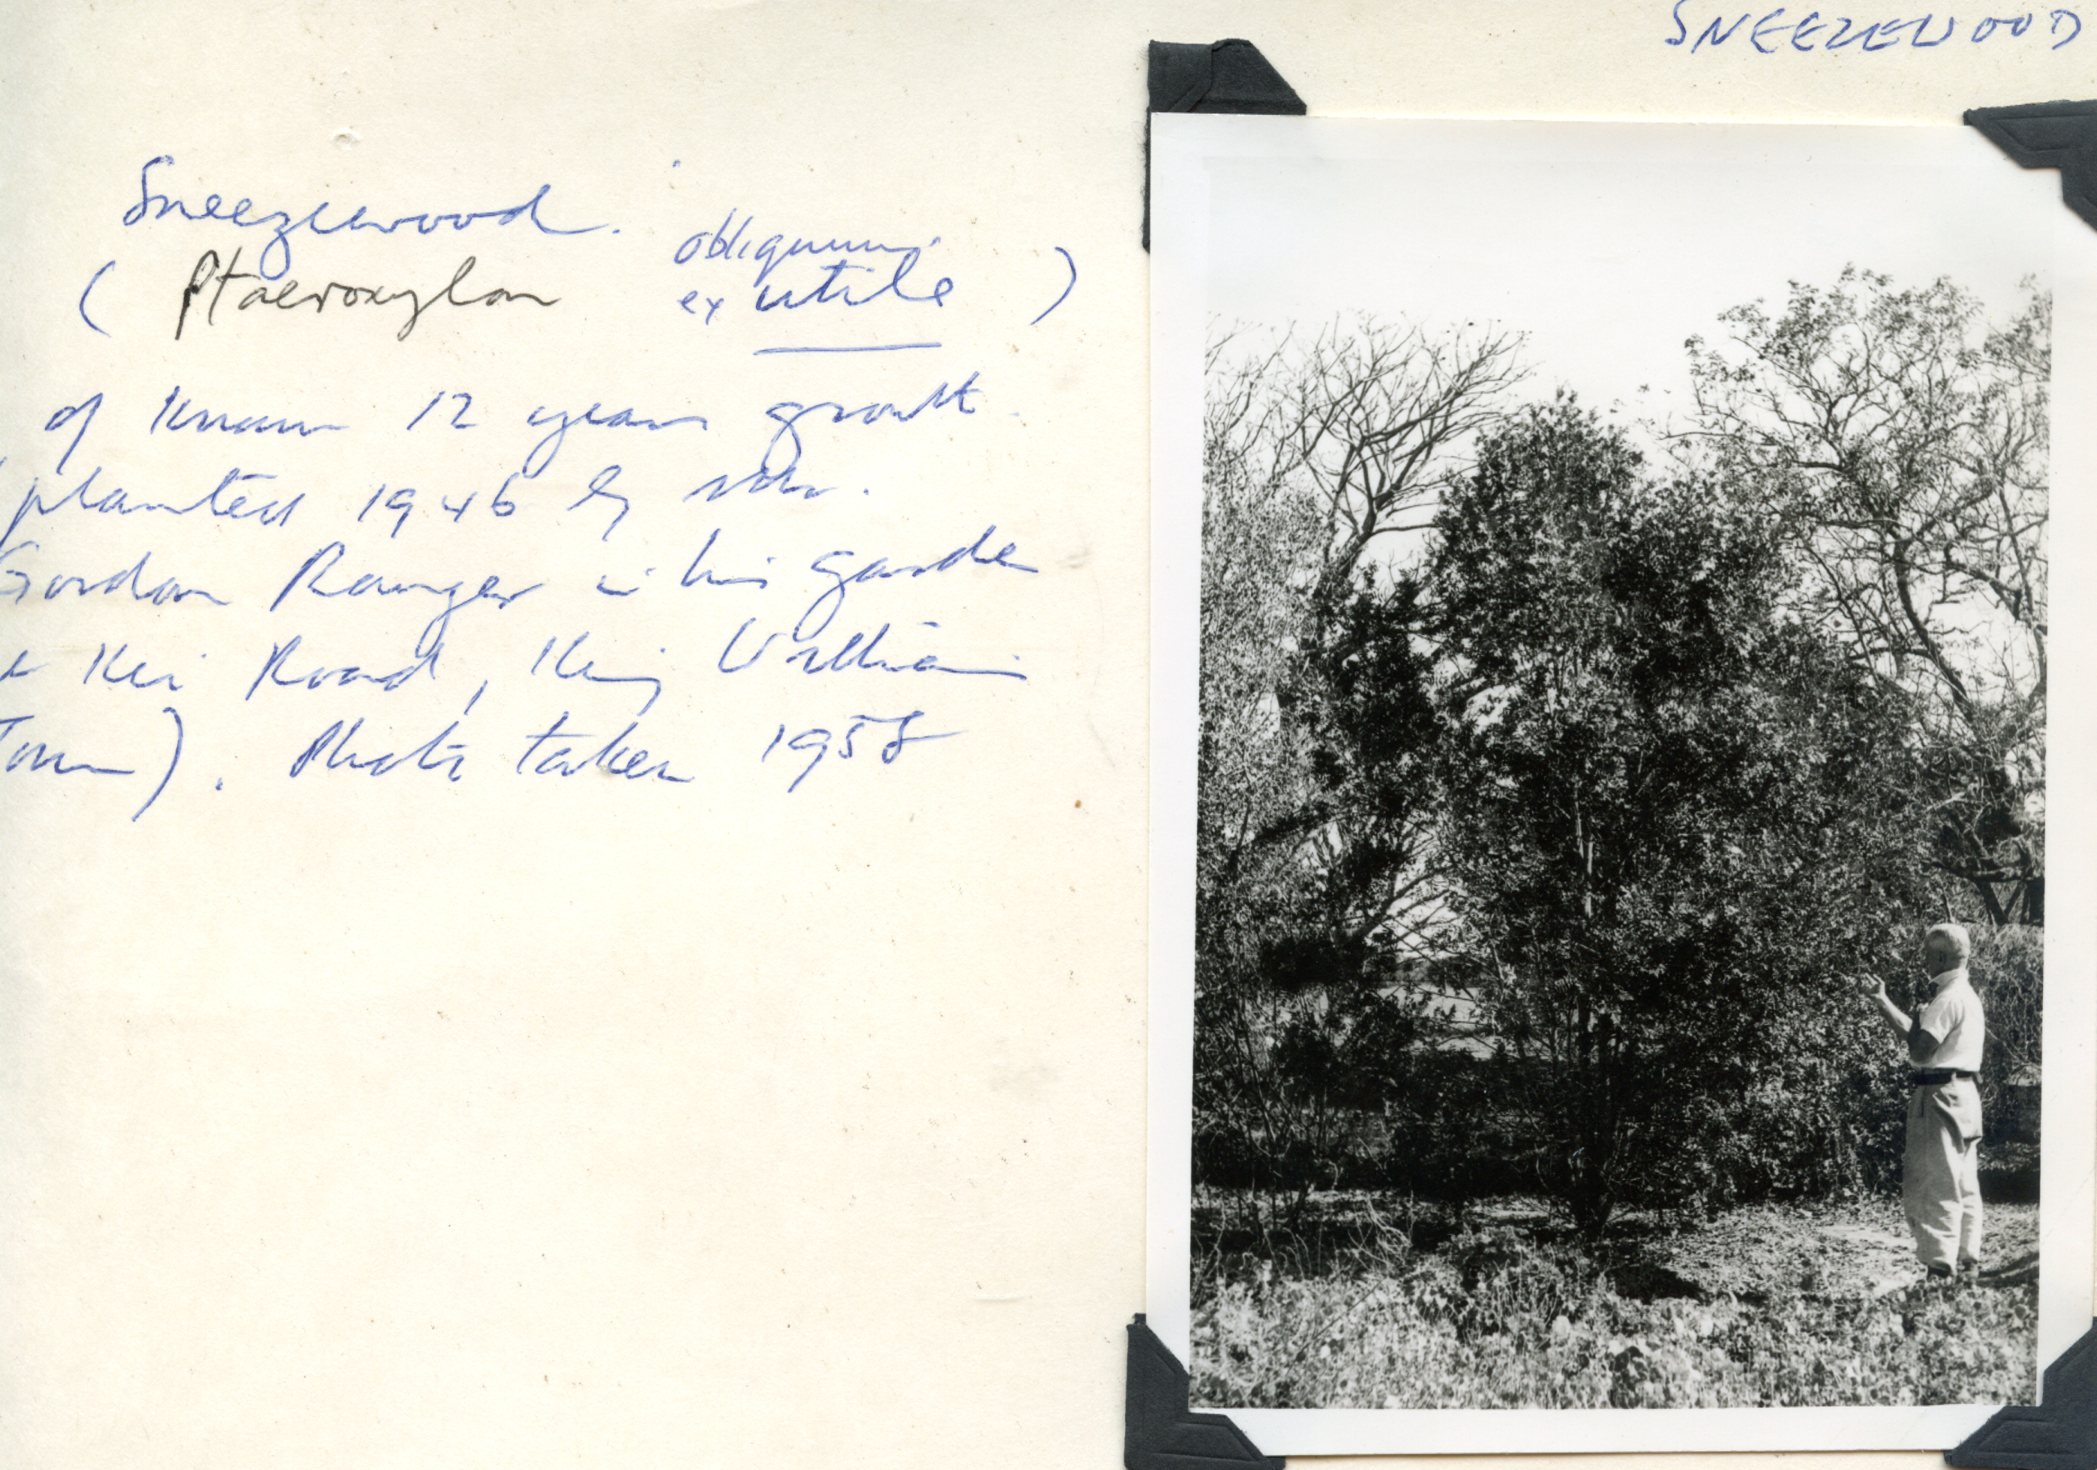 SNEEZEWOOD
Sneezewood.
obliquum
( Ptaeroxylon ex utile )
of known 12 years growth.
planted 1946 by Mr.
Gordon Ranger in his garden
Kei Road, King William
Town). Photo taken 1958